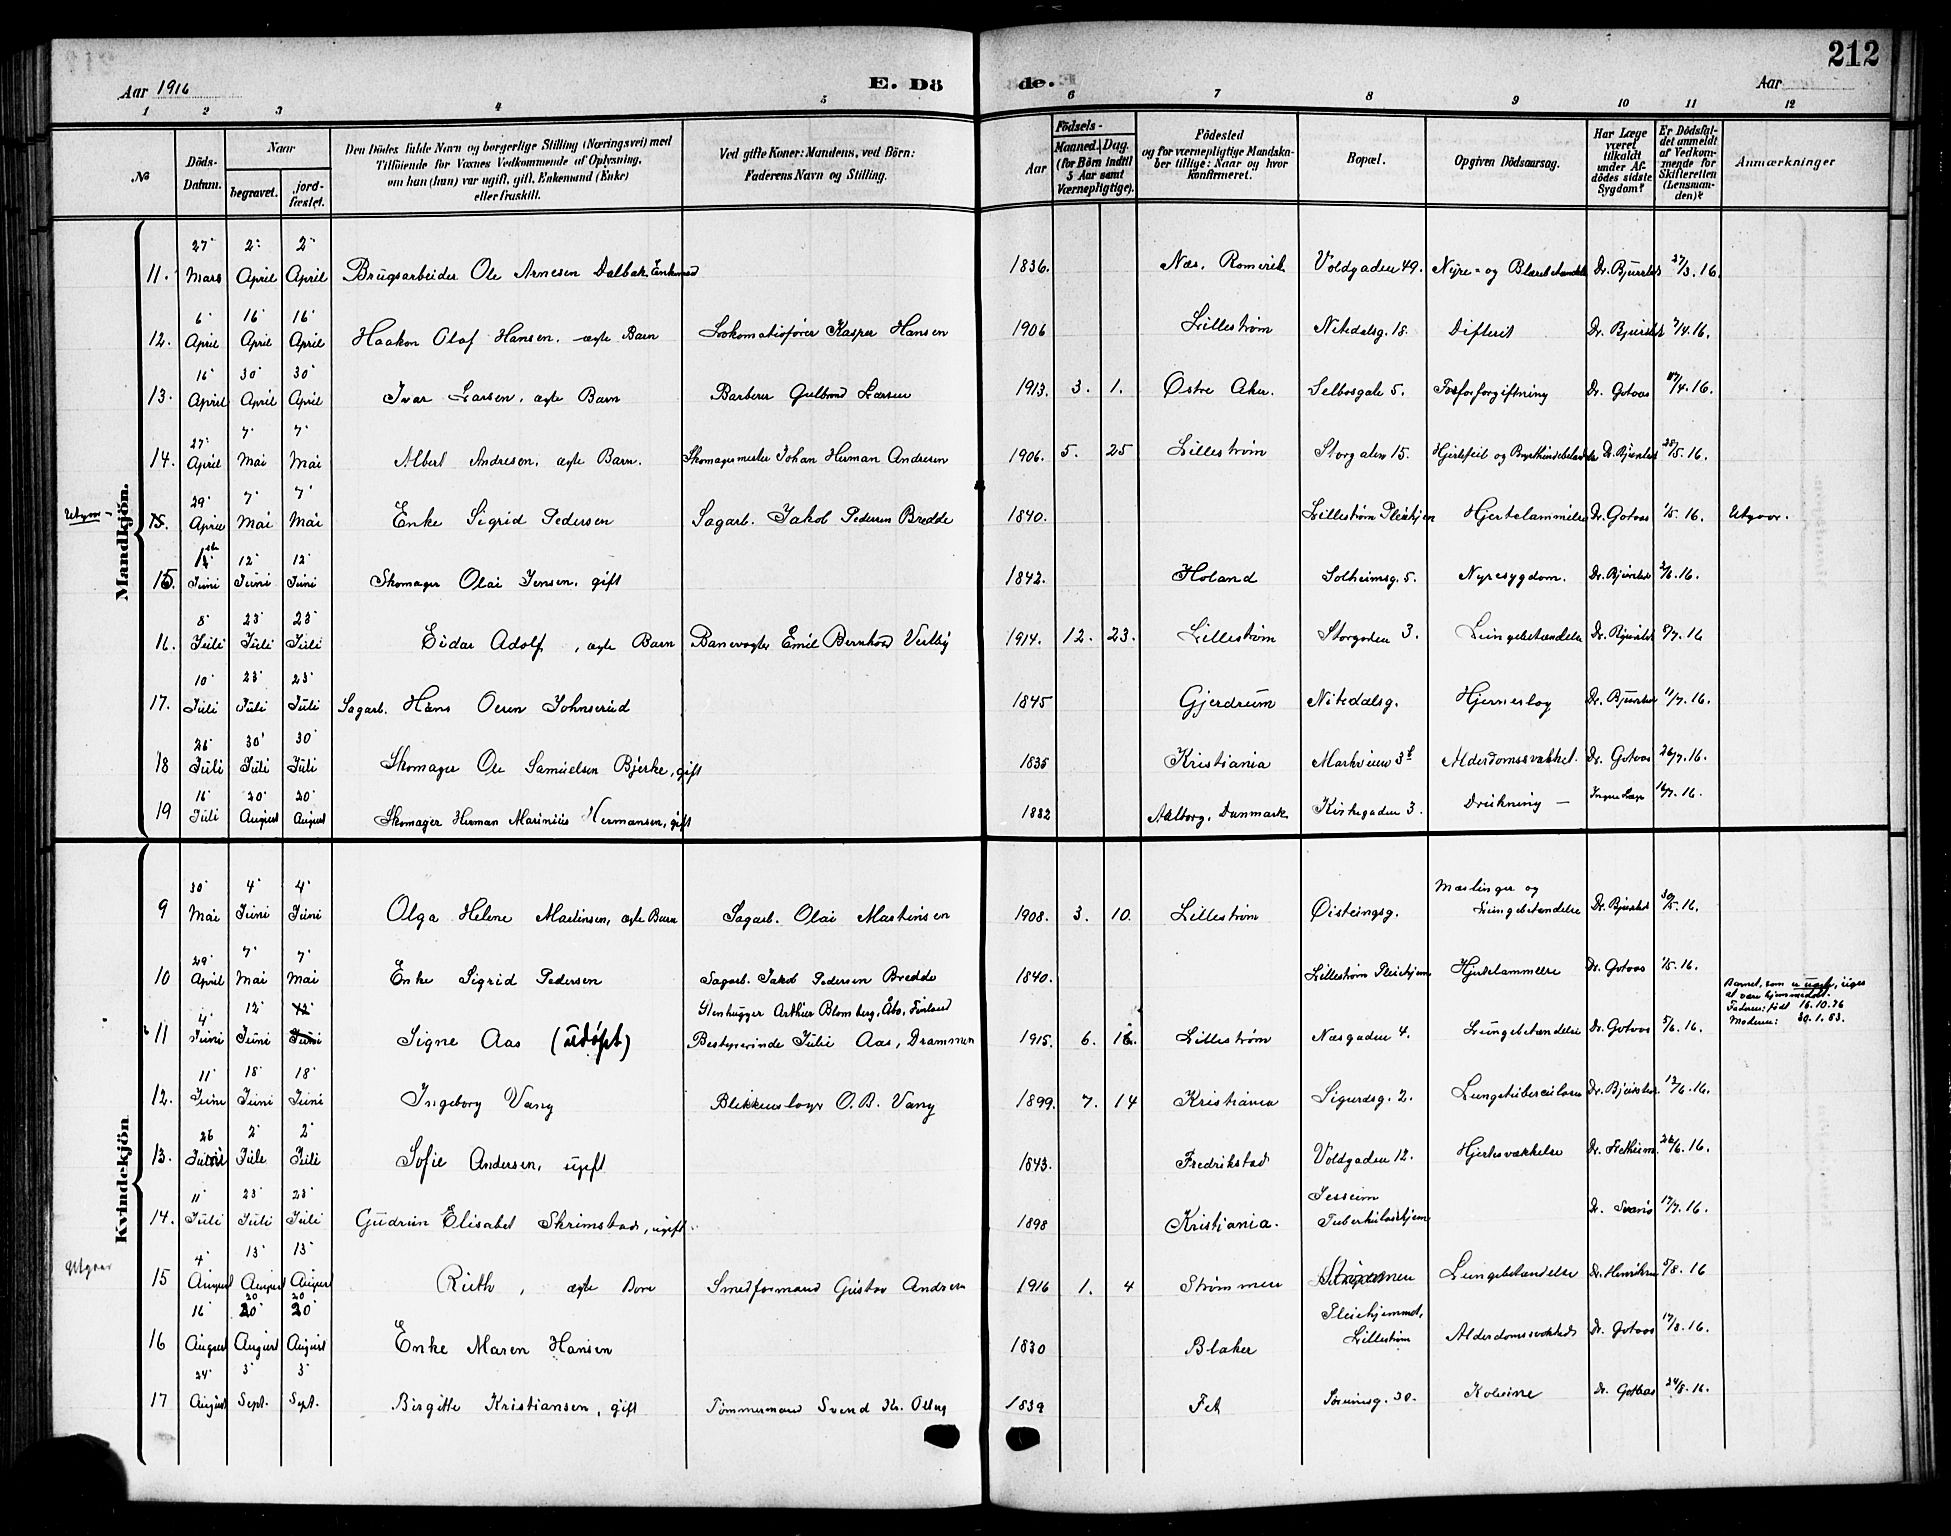 212
Aar 1916 E. Dö de. Aar
1 2 3 4 5 6 7 8 9 10 11 12
No. Döds-Datum. Naar begravet. jordfæstet. Den Dödes fulde Navn og borgerlige Stilling (Næringsvei) med Tilföiende for Voxnes Vedkommende af Oplysning, om han (hun) var ugift, gift, Enkemand (Enke) eller fraskilt. Ved gifte Koner: Mandens, ved Börn: Faderens Navn og Stilling. Födsels- Aar Maaned. Dag. (for Börn indtil 5 Aar samt Værnepligtige). Födested og for værnepligtige Mandskaber tillige: Naar og hvor konfirmeret. Bopæl. Opgiven Dödsaarsag. Har Læge været tilkaldt under Afdödes sidste Sygdom? Er Dödsfaldet anmeldt af Vedkommende for Skifteretten (Lensmanden)? Anmærkninger
Mandkjön.
11. 27. Mars 2. April 2. April Brugsarbeider Ole Arnesen Dalbak. Enkemand 1836. Næs, Romerik. Voldgaden 49. Nyre- og Blærebetændelse Dr. Bjurstedt 27/3. 16.
12. 6. April 16. April 16. April Haakon Olaf Hansen, ægte Barn Lokomotivfører Kasper Hansen 1906 Lillestrøm Nitedalsg. 18. Difterit Dr. Bjurstedt 7/4. 16.
13. 16. April 30. April 30. April Ivar Larsen, ægte Barn Barberer Gulbrand Larsen 1913. 3. 1. Østre Aker. Selbosgate 5. Fosforforgiftning Dr. Gotaas 17/4. 16.
14. 27. April 7. Mai 7. Mai Albert Andresen, ægte Barn. Skomagermester Johan Herman Andresen 1906. 5. 25 Lillestrøm Storgaten 15. Hjertefeil og Brysthindebetændelse Dr. Bjurstedt 28/5. 16.
Utgaar 15. 29. April 7. Mai 7. Mai Enke Sigrid Pedersen Sagarb. Jakob Pedersen Bredde 1840. Lillestrøm Pleiehjem Hjertelammelse Dr. Gotaas 1/5. 16. Utgaar.
15. 1ste Juni 12. Juni 12. Juni Skomager Olai Jensen, gift 1842. Høland Solheimsg. 5. Nyresygdom. Dr. Bjurstedt 2/6. 16.
16. 8. Juli 23. Juli 23. Juli Eidar Adolf, ægte Barn Banevogter Emil Bernhard Vestby 1914. 12. 23. Lillestrøm Storgaden 3. Lungebetændelse Dr. Bjurstedt 9/7. 16
17. 10. Juli 23. Juli 23. Juli Sagarb. Hans Olsen Johnsrud 1845 Gjerdrum Nitedalsg. Hjerneslag Dr. Bjurstedt 11/7. 16.
18 26. Juli 30. Juli 30. Juli Skomager Ole Samuelsen Bjerke, gift 1835 Kristiania Markveien 3b Alderdomssvakhet. Dr. Gotaas 26/7. 16.
19 16. Juli 20. August 20. August Skomager Herman Marinius Hermansen, gift 1882 Aalborg, Danmark Kirkegaden 3. Drukning — Ingen Læge 16/7. 16.
Kvindekjön
9 30. Mai 4. Juni 4. Juni Olga Helene Martinsen, ægte Barn Sagarb. Olai Martinsen 1908. 3. 10. Lillestrøm Øisteinsg. Mæslinger og Lungebetændelse Dr. Bjurstedt 30/5. 16.
10 29. April 7. Mai 7. Mai Enke Sigrid Pedersen Sagarb. Jakob Pedersen Bredde 1840. Lillestrøm Pleiehjem Hjertelammelse Dr. Gotaas 1/5. 16.
11 4. Juni 12. Juni 12. Juni Signe Aas (udøpt) Stenhugger Arthur Blomberg, Åbo, Finland Bestyrerinde Julie Aas, Drammen 1915. 6. 16. Lillestrøm Næsgaden 4. Lungebetændelse Dr. Gotaas 5/6. 16. Barnet, som er uægte, siges at være hjemmedøbt. Faderen: født 16.10.76 Moderen: 30.1.83.
12. 11. Juni 18. Juni 18. Juni Ingeborg Vang Blikkenslager O. B. Vang 1899. 7. 14 Kristiania Sigurdsg. 2. Lungetuberculose Dr. Bjurstedt 12/6. 16.
13. 26 Juni 2. Juli 2. Juli Sofie Andersen, ugift 1843. Fredrikstad Voldgaden 12. Hjertesvækkelse Dr. Fetheim 26/6. 16.
14. 11. Juli 23. Juli 23. Juli Gudrun Elisabet Skrimstad, ugift. 1898 Kristiania. Jessheim Tuberkulosehjem Dr. Svanø 17/7. 16.
Utgaar 15 4. August 13. August 13. August Ruth, ægte Barn Smedformand Gustav Andresen 1916 1. 4 Strømmen Strømmen Lungebetændelse Dr. Henriksen 5/8. 16
16 16. August 20. August 20. August Enke Maren Hansen 1830 Blaker Pleiehjemmet, Lillestrøm Alderdomssvakhed Dr. Gotaas 17/8. 16.
17 24. August 3. Sept. 3. Sept. Birgitte Kristiansen, gift Tømmermand Svend Kr. 1839 Fet 30. Kolerine Dr. Gotaas 24/8. 16.